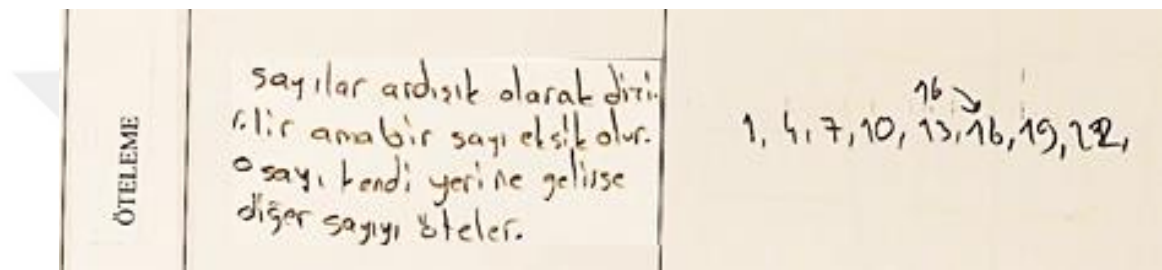 ÖTELEME
sayılar ardışık olarak dizi-
rilir ama bir sayı eksik olur.
o sayı kendi yerine gelirse
diğer sayıyı öteler.
16
1, 4, 7, 10, 13, 16, 19, 22,